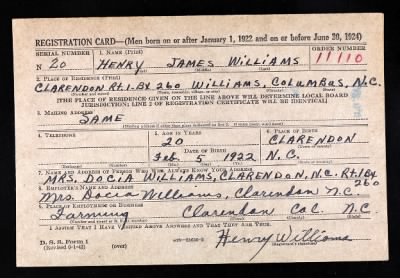 REGISTRATION CARD—(Men born on or after January 1, 1922 and on or before June 30, 1924)
SERIAL NUMBER 1. NAME (Print) ORDER NUMBER
N 20 HENRY JAMES WILLIAMS 11110
2. PLACE OF RESIDENCE (Print)
CLARENDON Rt.1.Bx 260 WILLIAMS, COLUMBUS, N.C.
[THE PLACE OF RESIDENCE GIVEN ON THE LINE ABOVE WILL DETERMINE LOCAL BOARD
JURISDICTION; LINE 2 OF REGISTRATION CERTIFICATE WILL BE IDENTICAL]
3. MAILING ADDRESS
SAME
4. TELEPHONE 5. AGE IN YEARS 6. PLACE OF BIRTH
20 CLARENDON
DATE OF BIRTH
Feb. 5 1922 N.C.
7. NAME AND ADDRESS OF PERSON WHO WILL ALWAYS KNOW YOUR ADDRESS
MRS. DOCIA WILLIAMS, CLARENDON, N.C. Rt.1 Bx
260
8. EMPLOYER'S NAME AND ADDRESS
Mrs. Docia Williams, Clarendon N.C.
9. PLACE OF EMPLOYMENT OR BUSINESS
Farming Clarendon Col. N.C.
I AFFIRM THAT I HAVE VERIFIED ABOVE ANSWERS AND THAT THEY ARE TRUE.
D. S. S. Form 1
(Revised 6-1-42) (over)
Henry Williams